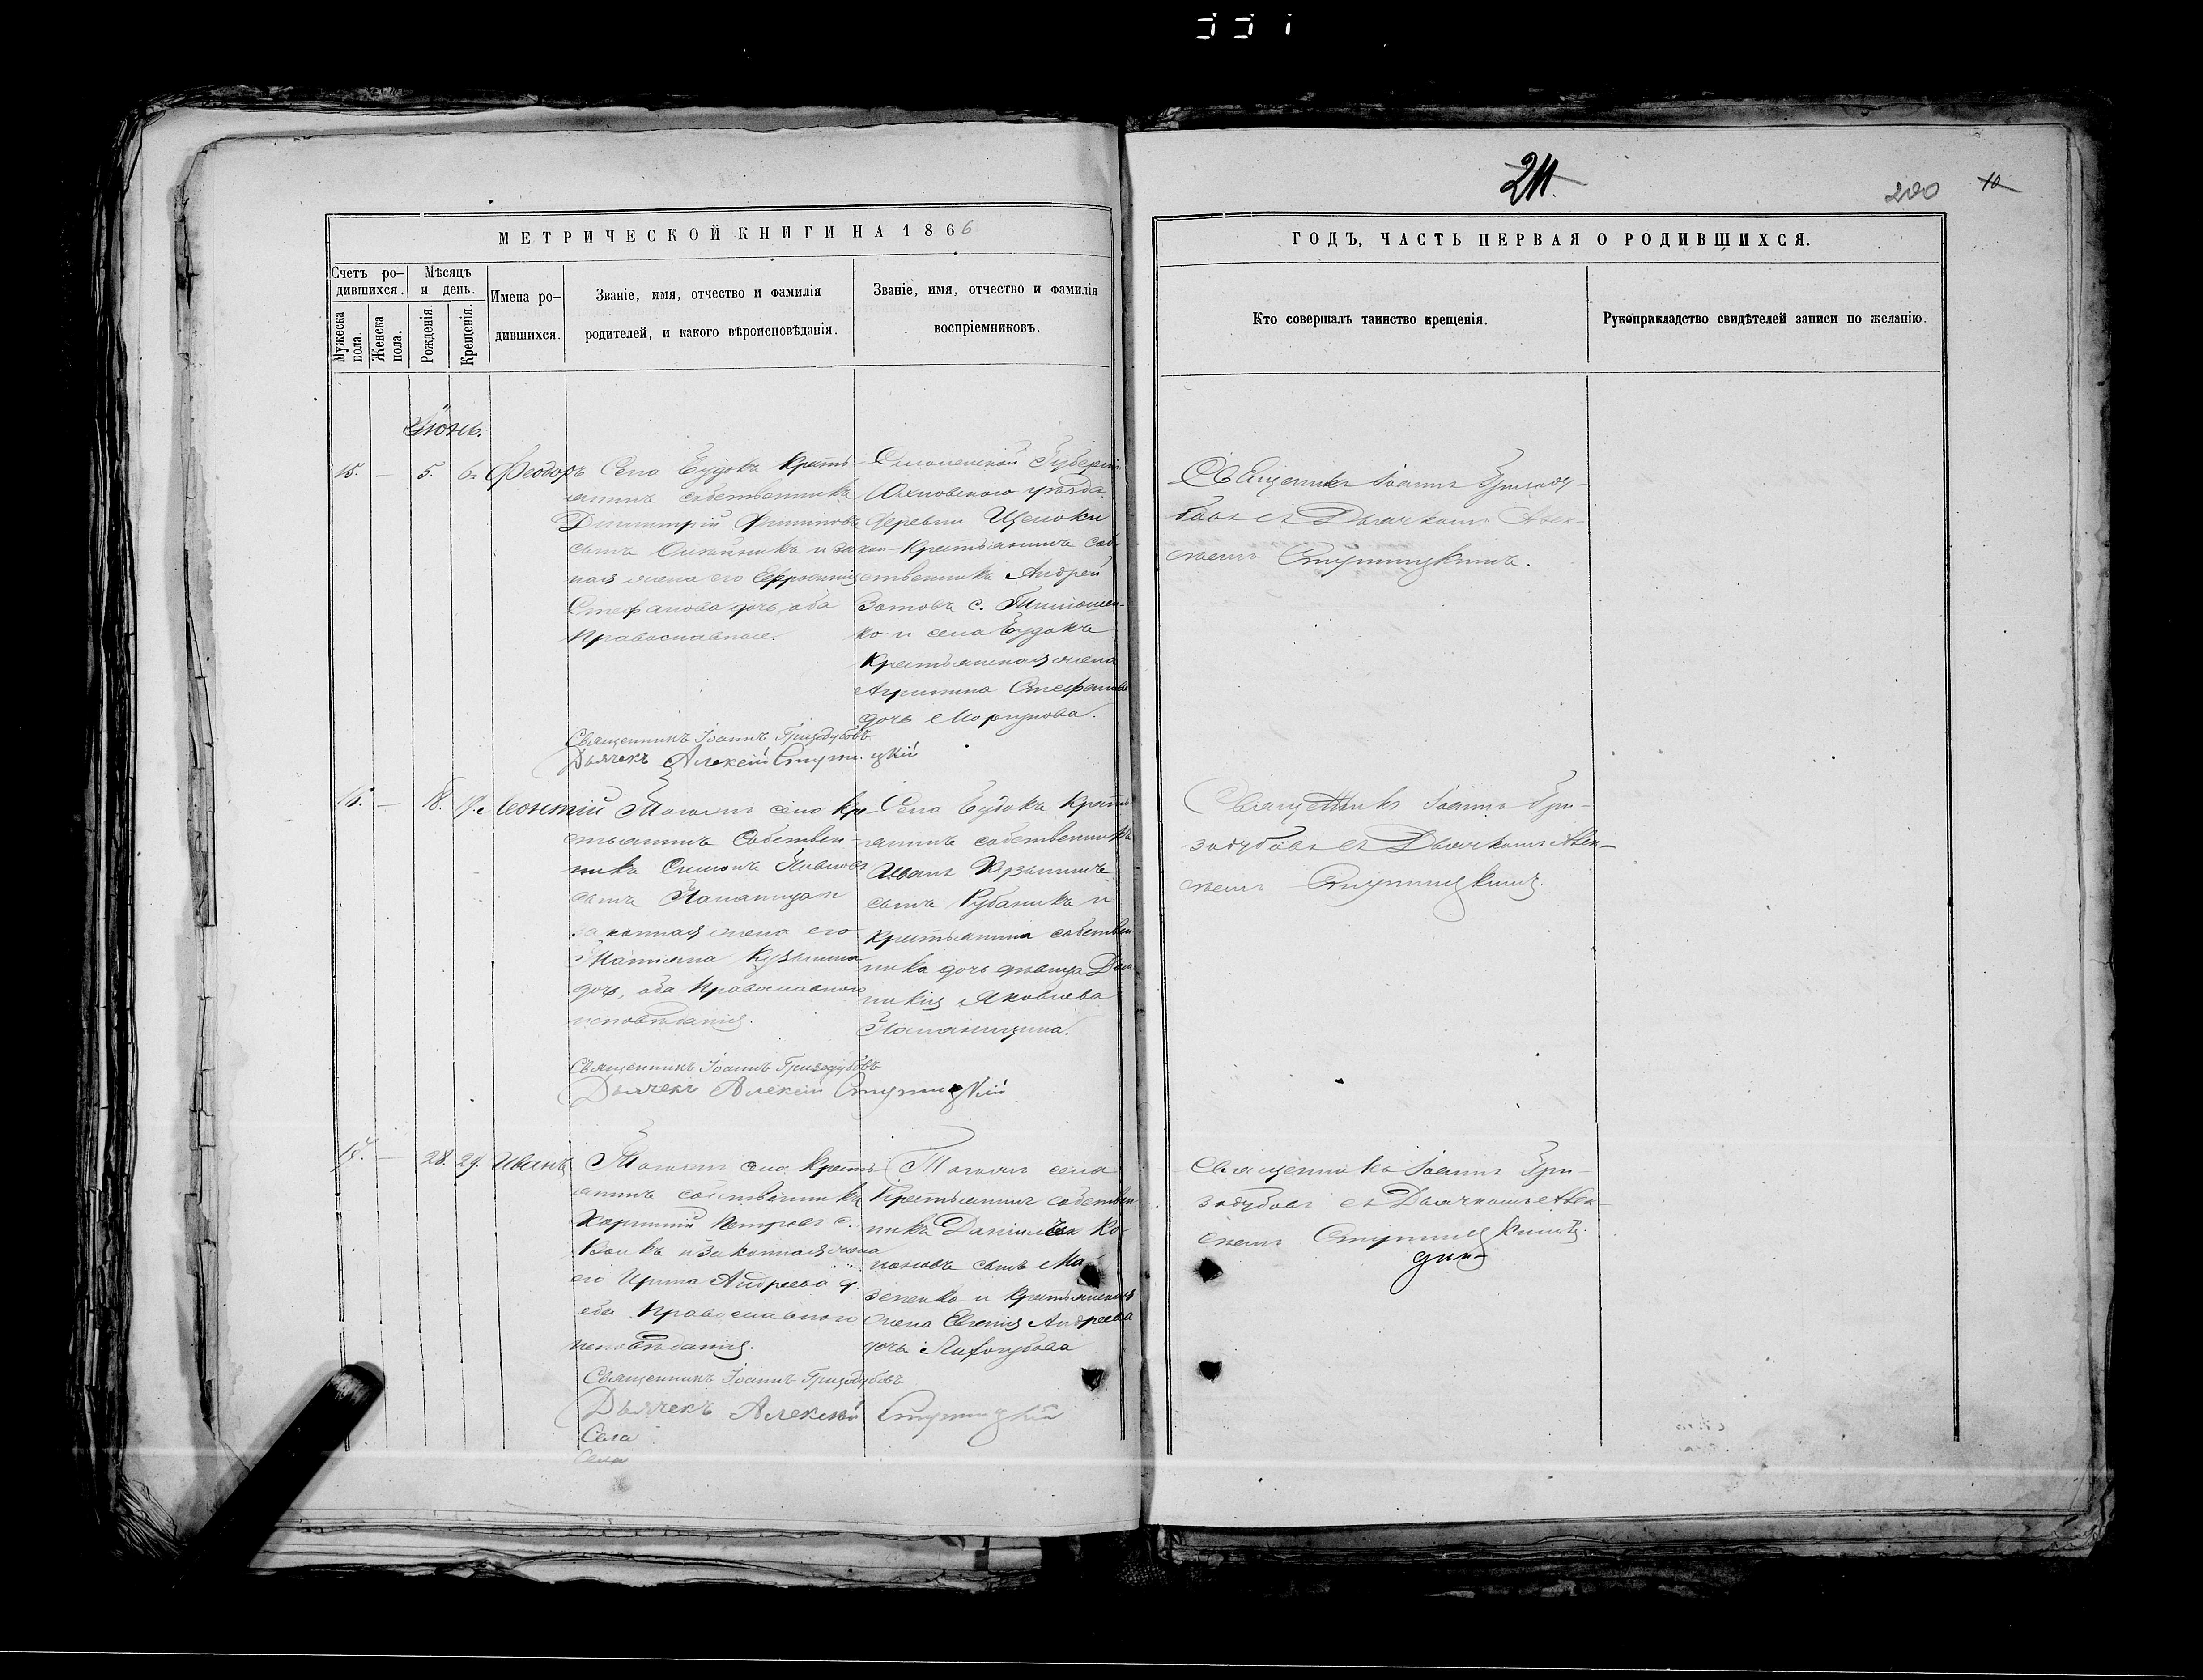 331
211.
200
10
МЕТРИЧЕСКОЙ КНИГИ НА 1866
ГОДЪ, ЧАСТЬ ПЕРВАЯ О РОДИВШИХСЯ.
Счетъ ро-
дившихся.
Мужеска пола.
Женска пола.
Мѣсяцъ
и день.
Рожденія.
Крещенія.
Имена ро-
дившихся.
Званіе, имя, отчество и фамилія
родителей, и какого вѣроисповѣданія.
Званіе, имя, отчество и фамилія
воспріемниковъ.
Кто совершалъ таинство крещенія.
Рукоприкладство свидѣтелей записи по желанію.
Іюнь.
15. — 5. 6. Феодоръ
Села Будокъ Кресть-
янинъ собственникъ
Димитрій Филиповъ
сынъ Олейникъ и закон-
ная жена его Евфросинія
Стефанова дочь, оба
Православные.
Смоленской Губерніи
уѣзда
Деревни
Крестьянинъ соб-
ственникъ Андрей
Зотовъ с. Тимошен-
ко и села Будокъ
Крестьянская жена
Агрипина Стефанова
дочь
Священникъ Іоаннъ Гризодубовъ
Дьячекъ Алексій Ступницкій
Священникъ Іоаннъ Гризоду-
бовъ съ Дьячкомъ Алек-
сѣемъ Ступницкимъ.
16. — 18. 19. Леонтій
Тогожъ села Кре-
стьянинъ Собствен-
никъ Симонъ Ивановъ
сынъ и
законная жена его
Татіана Кузьмина
дочь, оба Православного
исповѣданія.
Села Будокъ Кресть-
янинъ собственникъ
Иванъ
сынъ Рубаникъ и
крестьянина собствен-
ника дочь дѣвица Дом-
никія Яковлева
Священникъ Іоаннъ Гризодубовъ
Дьячекъ Алексій Ступницкій
Священникъ Іоаннъ Гри-
зодубовъ съ Дьячкомъ Алек-
сѣемъ Ступницкимъ.
17. — 28. 29. Иванъ
Тогожъ села Кресть-
янинъ собственникъ
Харитонъ Петровъ с.
и законная жена
его Ирина Андреева д.
оба Православного
исповѣданія.
Тогожъ села
Крестьянинъ собствен-
никъ Даніилъ Ко-
сынъ Ма-
зепенко и Крестьянская
жена Евгенія Андреева
дочь
Священникъ Іоаннъ Гризодубовъ
Дьячекъ Алексій Ступницкій
Села
Села
Священникъ Іоаннъ Гри-
зодубовъ съ Дьячкомъ Алек-
сѣемъ Ступницкимъ.